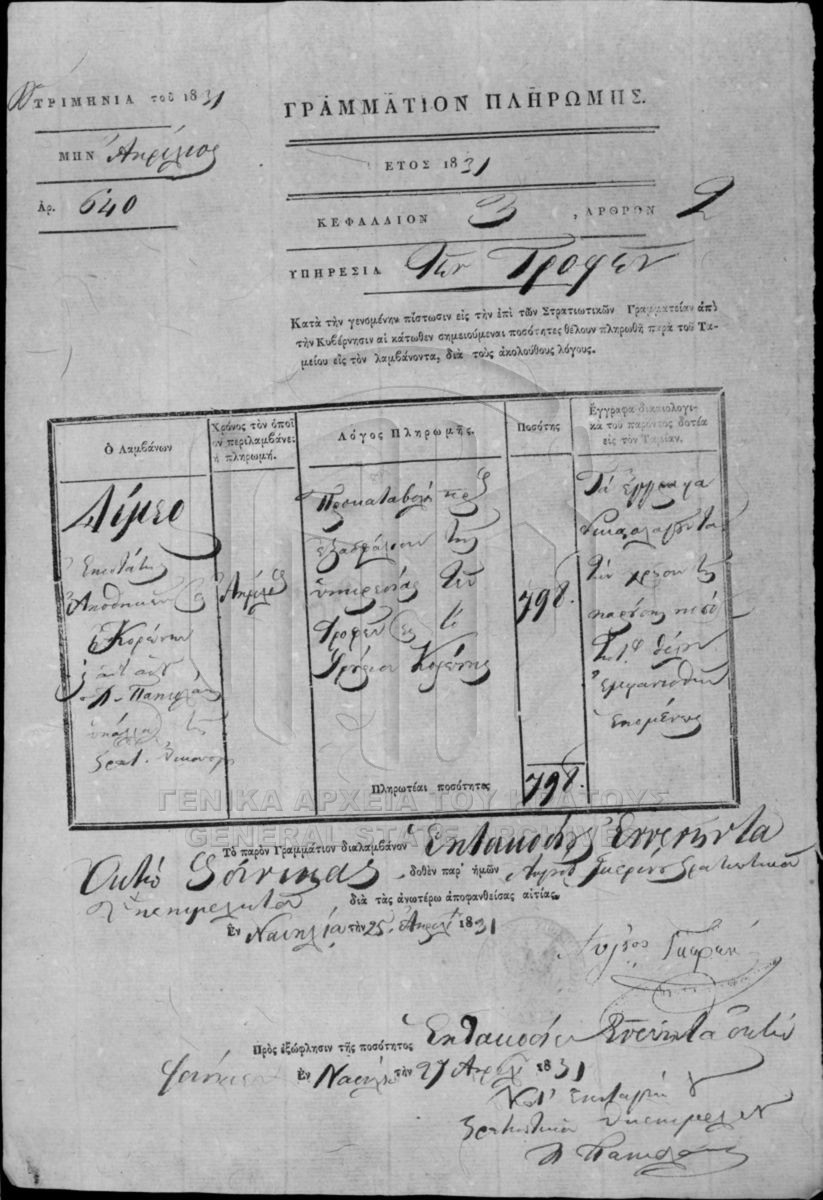 ΤΡΙΜΗΝΙΑ τοῦ 1831
ΜΗΝ Ἀπρίλιος
Ἀρ. 640
ΓΡΑΜΜΑΤΙΟΝ ΠΛΗΡΩΜΗΣ.
ΕΤΟΣ 1831
ΚΕΦΑΛΑΙΟΝ 3, ΑΡΘΡΟΝ 2
ΥΠΗΡΕΣΙΑ Τῶν Τροφῶν
Κατὰ τὴν γενομένην πίστωσιν εἰς τὴν ἐπὶ τῶν Στρατιωτικῶν Γραμματείαν ἀπὸ
τὴν Κυβέρνησιν αἱ κάτωθεν σημειούμεναι ποσότητες θέλουν πληρωθῆ παρὰ τοῦ Τα-
μείου εἰς τὸν λαμβάνοντα, διὰ τοὺς ἀκολούθους λόγους.
Ὁ Λαμβάνων
Χρόνος τὸν ὁποῖ
ον περιλαμβάνει
ἡ πληρωμή.
Λόγος Πληρωμῆς.
Ποσότης
Ἔγγραφα δικαιολογι-
κὰ τοῦ παρόντος δοτέα
εἰς τὸν Ταμίαν.
Ἐπιστάτης
Ἀποθηκῶν
Κορώνην
Προκαταβολὴ πρὸς
ἐξασφάλισιν τῆς
ὑπηρεσίας τῶν
Τροφῶν εἰς τὸ
Φρούριον Κορώνης
798.
Τὰ ἔγγραφα
δικαιολογοῦντα
τὴν χρῆσιν τῆς
παρούσης ποσό
θέλουν
ἐμφανισθῆ
ἑπομένως
Πληρωτέαι ποσότητες
798.
ΓΕΝΙΚΑ ΑΡΧΕΙΑ ΤΟΥ ΚΡΑΤΟΥΣ
GENERAL STATE ARCHIVES
Τὸ παρὸν Γραμμάτιον διαλαμβάνον Ἑπτακοσίους Ἐννενήντα
Ὀκτὼ Φοίνικας δοθὲν παρ' ἡμῶν
διὰ τὰς ἀνωτέρω ἀποφανθείσας αἰτίας.
Ἐν Ναυπλίᾳ τὴν 25 Ἀπριλ 1831
Πρὸς ἐξώφλησιν τῆς ποσότητος Ἑπτακοσίων Ἐννενήντα ὀκτὼ
Ἐν Ναυπλίᾳ τὴν 27 Ἀπριλ 1831